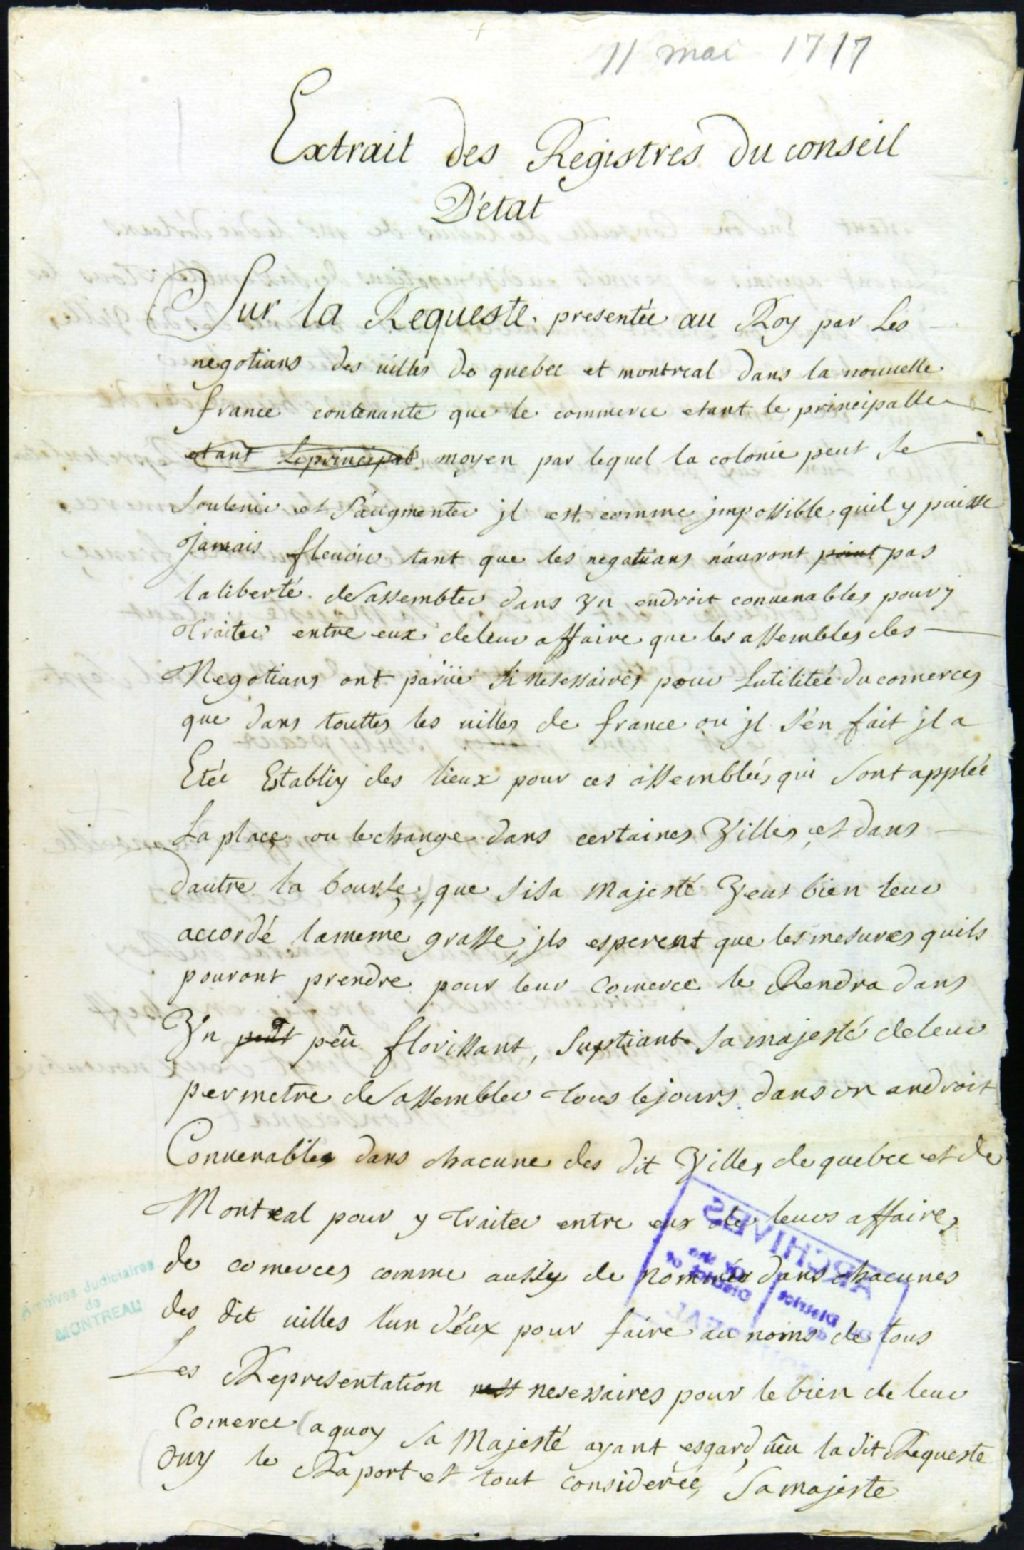 11 mai 1717
Extrait des Registres du conseil
D'etat
Sur la Requeste presentée au Roy par Les
negotians des villes de quebec et montreal dans la nouvelle
france contenante que le commerce etant le principalle
etant le principal moyen par lequel la colonie peut se
soutenir et s'augmenter jl est comme jmpossible quil y puisse
Jamais fleurir tant que les negotians n'auront point pas
la liberté de sassembler dans un endroit convenables pour y
traiter entre eux de leur affaire que les assembles des
Negotians ont parüe si nesessaires pour Lutilitée du comerces
que dans touttes les villes de france ou jl s'en fait jl a
Etée Establiy des lieux pour ces assemblées qui sont applée
La place ou le change dans certaines Villes, et dans
dautre la bourse, que si sa Majesté Veut bien leur
accordé la meme grasse, jls esperent que les mesures quils
pouront prendre pour leur Comerce le Rendra dans
Un petit peu florissant, supliant sa majesté de leur
permetre de sassembler tous le jours dans un androit
Convenables dans chacune des dit Villes de quebec et de
Montreal pour y traiter entre eux de leurs affaires
de comerces comme aussy de nommér dans chacunes
des dit villes l'un d'Eux pour faire au noms de tous
Les Representation nesessaires pour le bien de leur
Comerce aquoy sa Majesté ayant esgard, veu la dit Requeste
ouy le Raport et tout considerée, sa majeste
ARCHIVES
District
Archives Judiciaires
de
MONTREAL